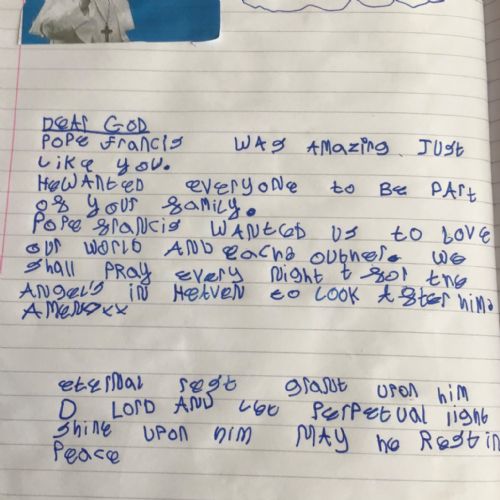 DEAR GOD
POPE francis WAS AMAZING JUST
LIKE YOU.
HE WANTED everyone to BE PART
OF YOUR family.
POPE francis WANTED US to LOVE
our WORLD AND each outher. we
shall PRAY every night t for the
ANgel's in HeTVEN to LOOK After him.
AMENxx
eternal rest grant upon him
O LORD AND Let PerPetual light
shine upon him MAY he Rest in
Peace